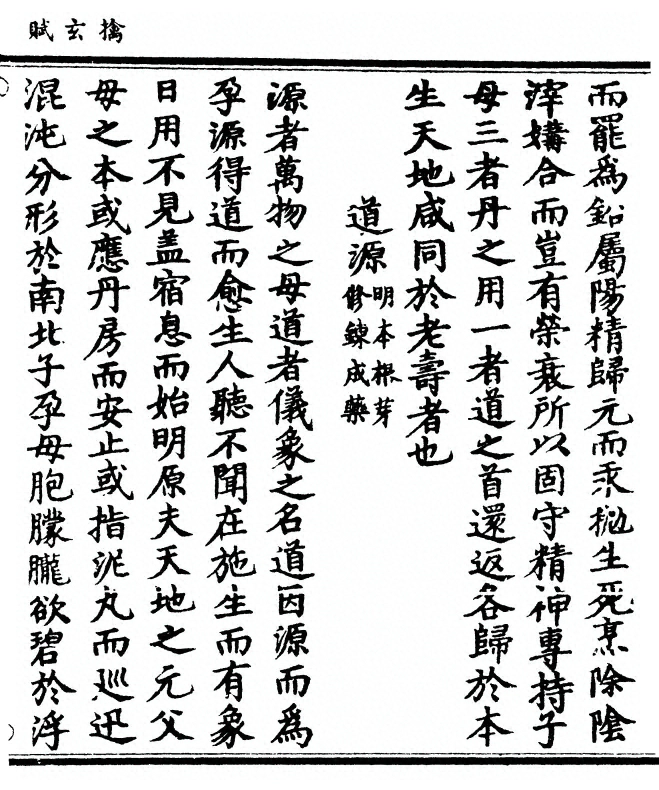 擒玄賦
而罷為鉛屬陽精歸元而汞拋生死烹除陰
滓媾合而豈有榮衰所以固守精神專持子
母三者丹之用一者道之首還返各歸於本
生天地咸同於老壽者也
道源明本根芽修鍊成藥
源者萬物之母道者儀象之名道因源而為
孕源得道而愈生人聽不聞在施生而有象
日用不見盖宿息而始明原夫天地之元父
母之本或應丹房而安止或指泥丸而巡迅
混沌分形於南北子孕母胞朦朧欲碧於浮